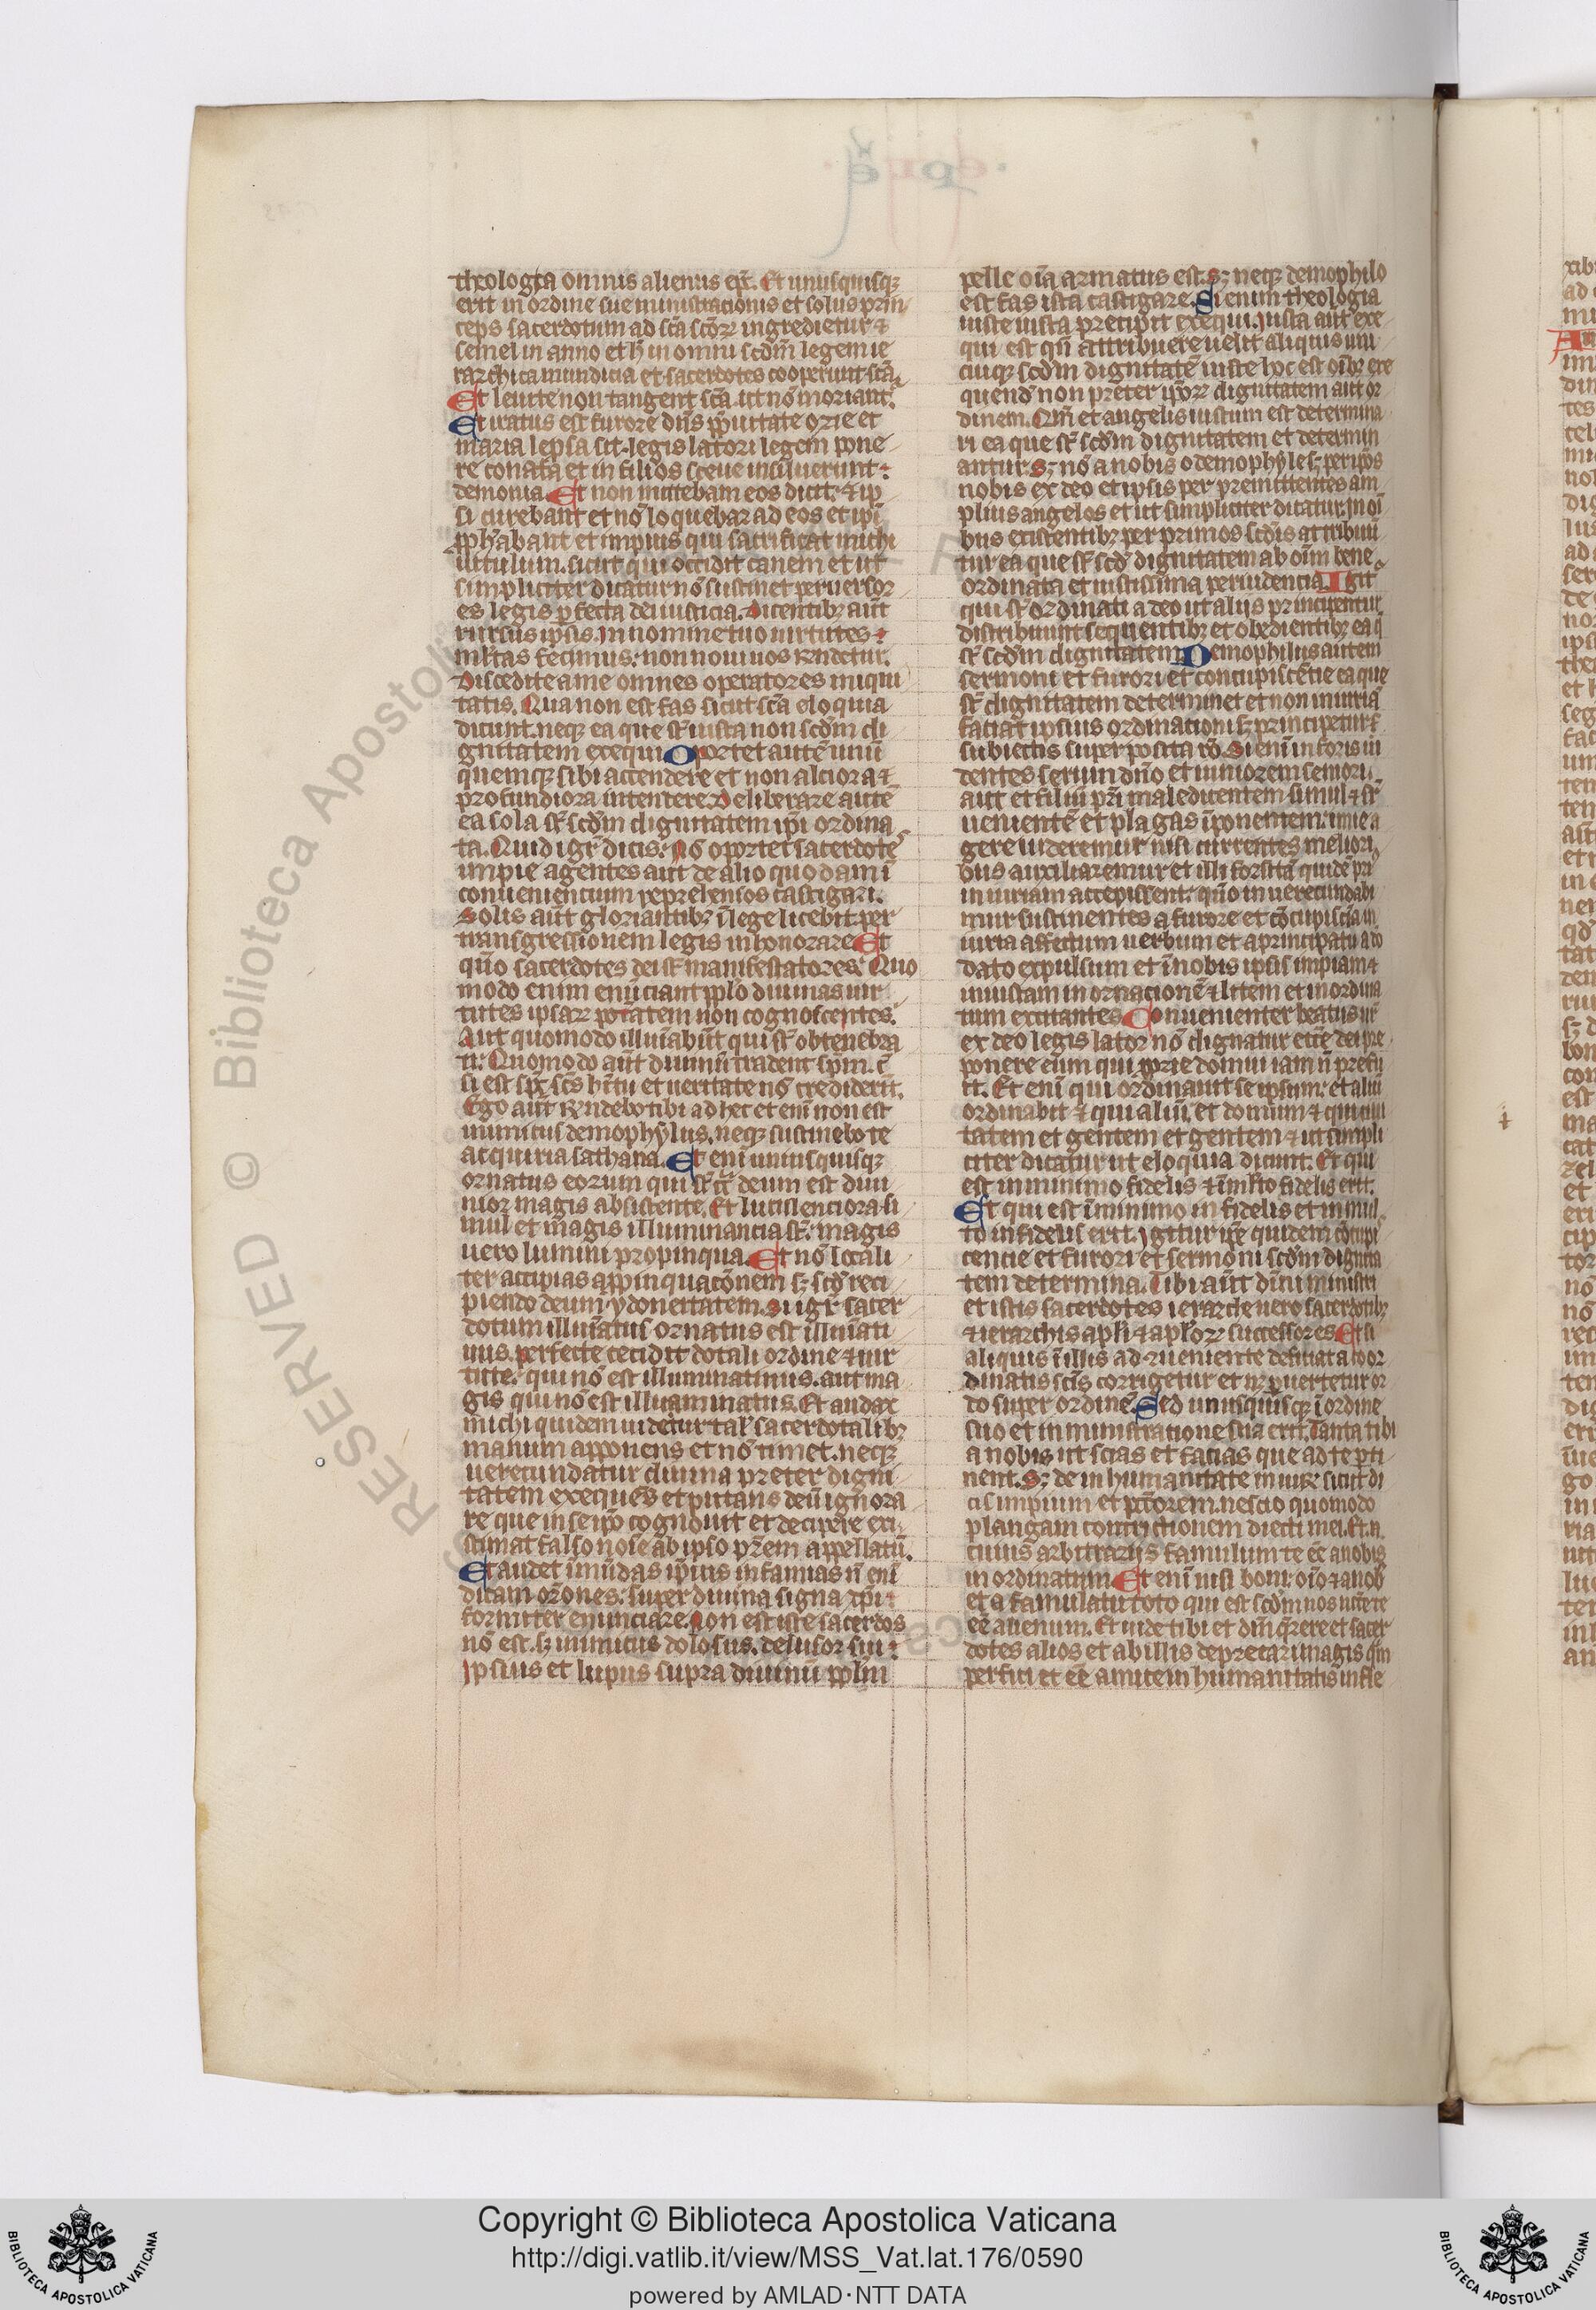 theologia omnis alienis ep̄c. Et unusquisqꝫ
erit in ordine sue ministracionis et solus prin
ceps sacerdotum ad sc̄a sc̄oꝝ ingredietur ⁊
semel in anno et h̄ in omni scd̄m legem ie
rarchica mundicia et sacerdotes cooperiunt sc̄a
Et leuite non tangent sc̄a ut nō moriant᷑.
Et iratus est furore dn̄s
maria lepsa sit. legis latori legem pone
re conata et in filios sceue insiluerunt
demonia. Et non mittebam eos dicit. ⁊ ip
si curebant et nō loquebar ad eos et ip̄i
ꝓph̄abant et impius qui sacrificat michi
uitulum. sicut qui occidit canem et ut
simpliciter dicatur nō sustinet peruersor
es legis ꝑfecta dei iusticia. Dicentibꝫ aūt
rursus ip̄sis. In nomine tuo uirtutes
ml̄tas fecimus: non noui uos rn̄detur.
Discedite a me omnes operatores iniqui
tatis. Qua non est fas sicut sc̄a eloquia
dicunt. neqꝫ ea que sūt iusta non scd̄m di
gnitatem exequi. Oportet autē unū
quemqꝫ sibi attendere et non alciora ⁊
profundiora intendere. Deliberare autē
ea sola sūt scd̄m dignitatem ip̄i ordina
ta. Quid igr̄ dicis: Nō oportet sacerdote
impie agentes aut de alio quodam ī
conueniencium reprelensos castigari.
Solis aūt gloriantibꝫ ī lege licebit per
transgressionem legis inhonorare. Et
quō sacerdotes dei sūt manifestatores. Quo
modo enim enūciant pp̄lo diuinas uir
tutes ipsaꝝ potatem non cognoscentes.
Aut quomodo illuīabūt qui sūt obtenebra
ti. Quomodo aūt diuinū tradent spm̄.
si est spc̄ sc̄s h̄itu et ueritate nō crediderīt.
Ego aūt rn̄debo tibi ad hec et enī non est
inimicus demophylus. neqꝫ sustinebo te
acquiri a sathana. Et enī unusquisqꝫ
ornatus eorum qui sūt deum est diui
nior magis absistente. Et lucisienciora si
mul et magis illuminancia sūt. magis
uero lumini propinqua. Et nō locali
ter accipias appinquacōnem sꝫ scd̄ reci
piendo deum ydoneitatem. Si igr̄ sacer
dotum illuīatus ornatus est illuīati
uus. perfecte cecidit dotali ordine ⁊ uir
tute. qui nō est illuminatiuus. aut ma
gis qui nō est illuaminatus. Et audax
michi quidem uidetur tal̄ sacerdotalibꝫ
manum apponens et nō timet. neqꝫ
uerecundatur diuina preter digni
tatem exequens et putans deū ignora
re que in seip̄o cognouit et decipere exi
stimat falso noīe ab ipso pr̄em appellatū.
Et audet īmūdas ip̄ius infamias n̄ enī
dicam or̄ones. super diuina signa xp̄i
formiter enunciare. Non est iste sacerdos
nō est. sꝫ inimicus dolosus. delusor sui
Ipsius et lupus supra diuinū pp̄lm
pelle oīa armatus est. Sꝫ neqꝫ demophilo
est fas ista castigare. Si enim theologia
iuste iusta precipit exequi. Iusta aūt exe
qui est qn̄ attribuere uelit aliquis uni
cuiqꝫ scd̄m dignitatē iuste hoc est oībꝫ exe
quend non preter ip̄oꝝ dignitatem aut or
dinem. Qm̄ et angelis iustum est determina
ri ea que sūt scd̄m dignitatem et determin
antur. Sꝫ nō a nobis o demophyle sꝫ per ip̄os
nobis ex deo et ipsis per premittentes am
plius angelos et ut simpliciter dicatur. In oī
bus existentibꝫ per primos scd̄is attribuū
tur ea que sūt scd̄ dignitatem ab oīm bene
ordinata et iustissima peruidencia. Igit᷑
qui sūt ordinati a deo ut aliis principentur
distribuunt sequentibꝫ et obedientibꝫ ea q̄
sūt scd̄m dignitatem. Demophilus autem
sermoni et furori et concupiscētie ea que
sūt dignitatem determinet et non iniuria
faciat ipsius ordinacioni sꝫ principetur
subiectis superposita rō. Si enī in foris ui
dentes seruum dn̄o et iuniorem seniori
aut et filiū pr̄i maledicentem simul ⁊
uenientē et plagas īponentem. impie a
gere uideremur nisi currentes meliori
bus auxiliaremur et illi forsitā quidē pri
iniuriam accepissent. quō in uerecundabi
mur sustinentes a furore et cōcupiscīa in
iuria affectum uerbum et a principatu a deo
dato expulsum et ī nobis ipsis impiam ⁊
iniustam inornacionē ⁊ litem et inordina
tum excitantes. Conuenienter beatus ūr
ex deo legis lator nō dignatur ecctē dei pre
ponere eum qui ꝓprie domui iam n̄ prefu
it. Et enī qui ordinauit seipsum. et aliū
ordinabit ⁊ qui aliū. et domum ⁊ qui ciui
tatem et gentem et gentem ⁊ ut simpli
citer dicatur ut eloquia dicunt. Et qui
est in minimo fidelis ⁊ ī mlt̄o fidelis erit.
Et qui est ī minimo infidelis et in mul
to infidelis erit. Igitur ip̄e quidem cōcupi
cencie et furori et sermoni scd̄m dignita
tem determina. Tibi aūt diui ministri
et istis sacerdotes ierarche uero sacerdotibꝫ
⁊ ierarchis apl̄i ⁊ apl̄oꝝ successores. Et si
aliquis ī illis ad ueniente deficiat a co or
dinatis sc̄is corrigetur et nō ꝑuertetur or
do super ordinē. Sed unusquisqꝫ ī ordine
suo et in ministratione sua erit. Tanta tibi
a nobis ut scias et facias que ad te ꝑti
nent. Sꝫ de inhumanitate in uiꝝ sicut di
cis impium et pctōrem. nescio quomodo
plangam contrictionem dilecti mei. Et n.
cuius arbitrariis famulum te ēe a nobis
inordinatum. Et enī nisi boni. oīo ⁊ a nob̄
et a famulatu toto qui est scd̄m nos
eē alienum. Et uide tibi et dm̄ q̄rere et sacer
dotes alios et ab illis deprecari magis qm̄
perfici et eē amitem humanitatis infle
Copyright © Biblioteca Apostolica Vaticana
http://digi.vatlib.it/view/MSS_Vat.lat.176/0590
powered by AMLAD·NTT DATA